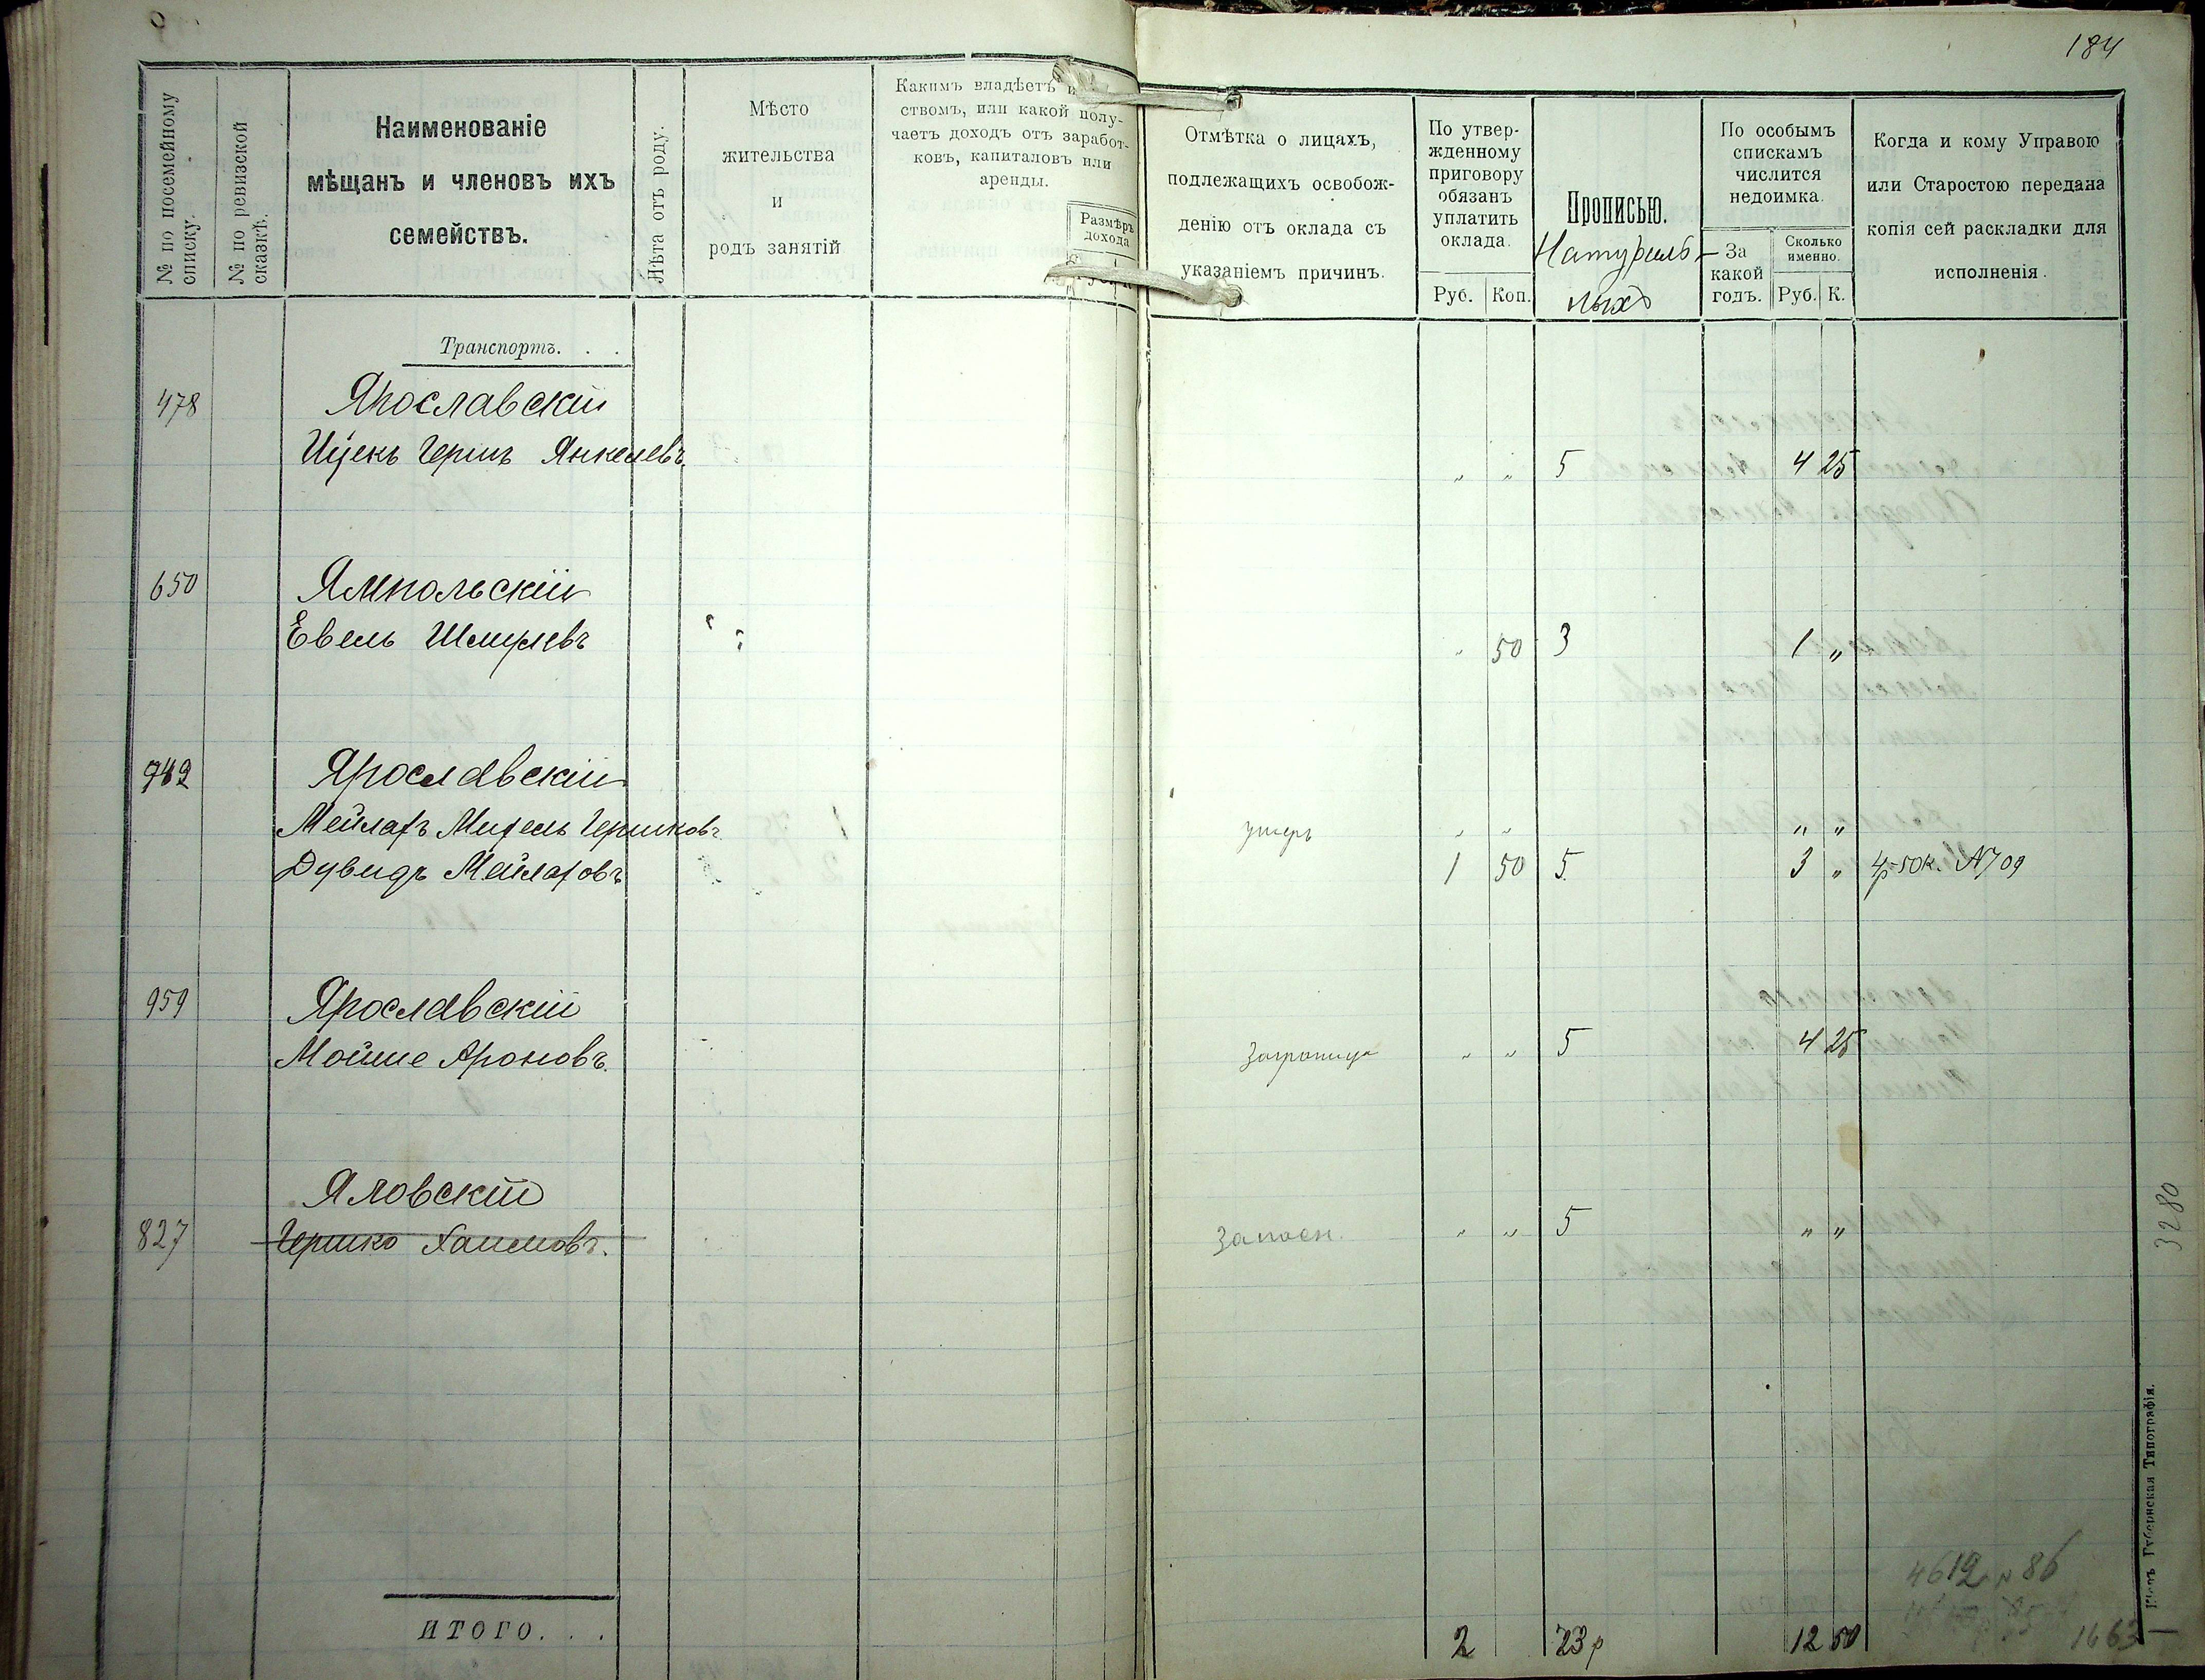 184
№ по посемейному списку.
№ по ревизской сказкѣ.
Наименованіе
мѣщанъ и членовъ ихъ
семействъ.
Лѣта отъ роду.
Мѣсто
жительства
и
родъ занятій
Какимъ владѣетъ
ствомъ, или какой полу-
чаетъ доходъ отъ заработ-
ковъ, капиталовъ или
аренды.
Размѣръ
дохода
Отмѣтка о лицахъ,
подлежащихъ освобож-
денію отъ оклада съ
указаніемъ причинъ.
По утвер-
жденному
приговору
обязанъ
уплатить
оклада.
Руб. Коп.
Прописью.
Натураль-
ныхъ
По особымъ
спискамъ
числится
недоимка.
За
какой
годъ.
Сколько
именно.
Руб. К.
Когда и кому Управою
или Старостою передана
копія сей раскладки для
исполненія.
Транспортъ. . .
478 Ярославскій
Ицекъ Гершъ Янкелевъ. " " 5 4 25
650 Ямпольскій
Евель Шмулевъ " 50 3 1 "
Ярославскій
Мейлахъ Михель Гершковъ умеръ " " " "
Дувидъ Мейлаховъ 1 50 5. 3 " 4р 50к. №709
959 Ярославскій
Мойше Ароновъ. заграницу " " 5 4 25
Яловскій
827 Гершко Хаимовъ. " " 5 " "
3280
ИТОГО. . . 2 23р 12 50
4612 86
1663 —
Губернская Типографія.